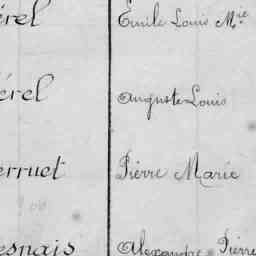 érel Emile Louis Mie
érel Auguste Louis
erruet Pierre Marie
esnais Alexandre Pierre